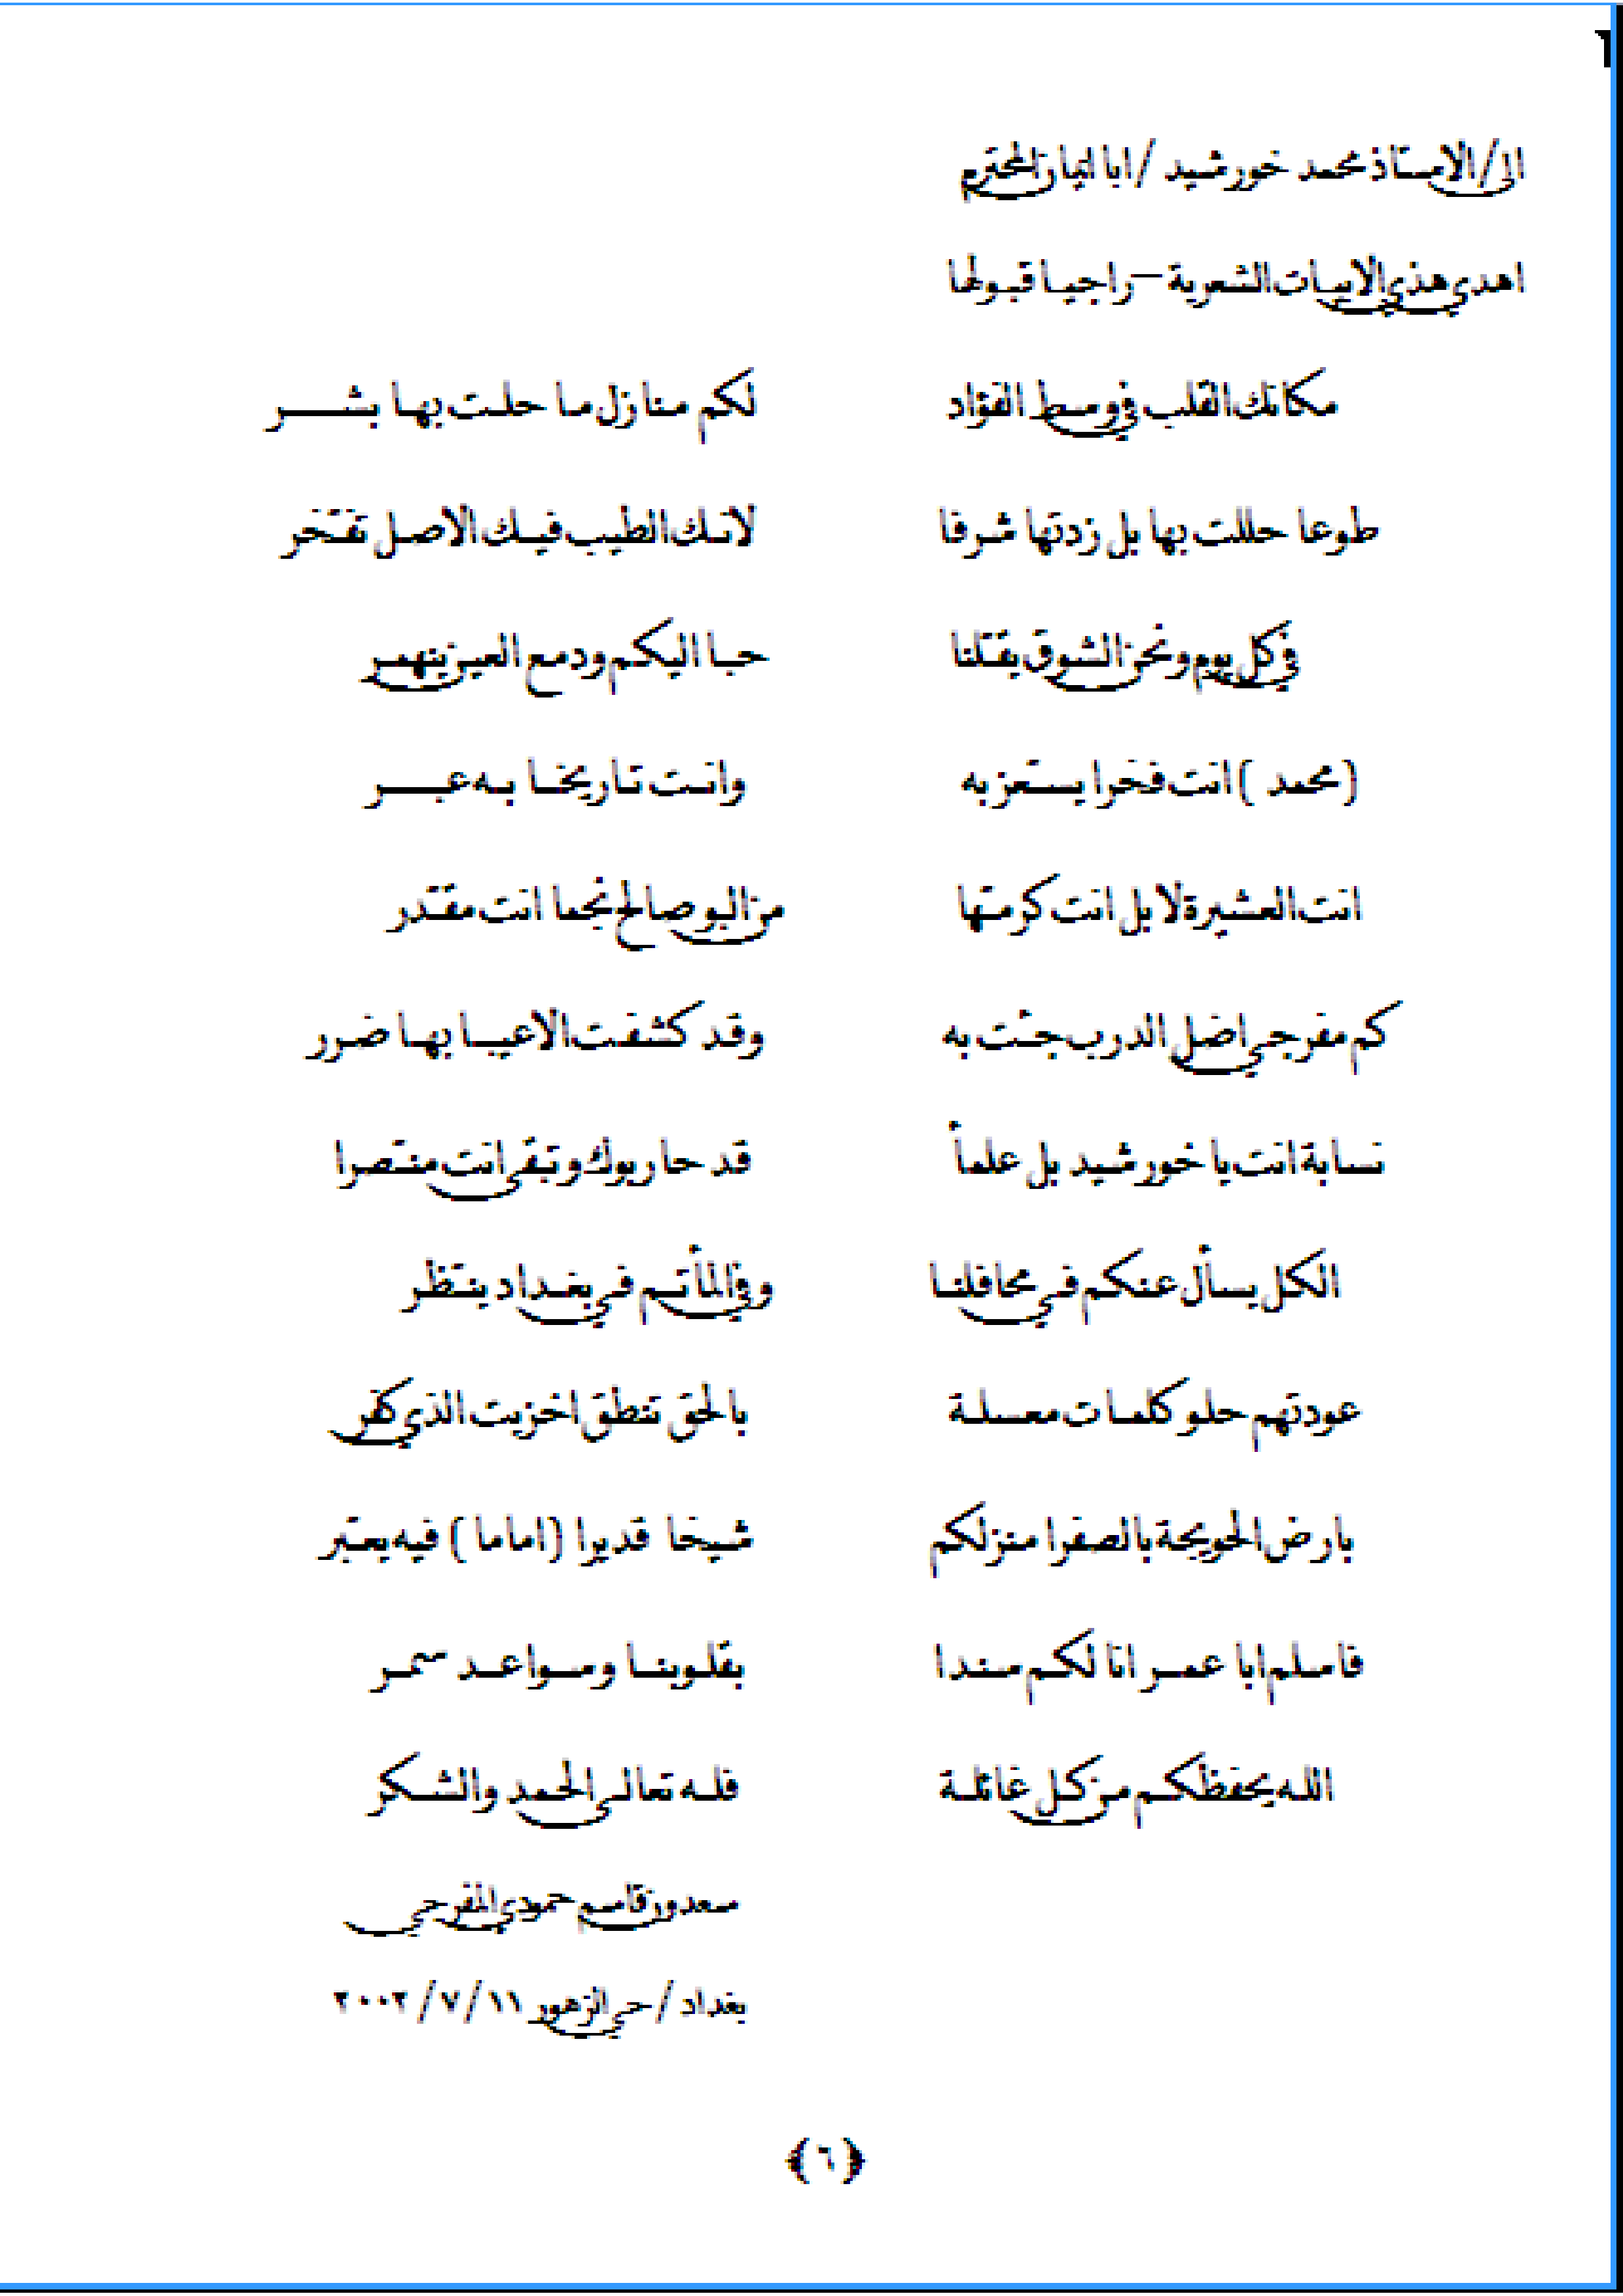 ٦
الى/الاستاذ محمد خورشيد /ابا انمار المحترم
اهدي هذي الابيات الشعرية – راجيا قبولها
مكانك القلب في وسط الفؤاد لكم منازل ما حلت بها بشر
طوعا حللت بها بل زدتها شرفا لانك الطيب فيك الاصل تفتخر
في كل يوم ونحن الشوق يقتلنا حبا اليكم ودمع العين ينهمر
(محمد ) انت فخرا يستعز به وانت تاريخا به عبر
انت العشيرة لا بل انت كرمتها من البو صالح نجما انت مقتدر
كم مفرجي اضل الدرب جئت به وقد كشفت الاعيبا بها ضرر
نسابة انت يا خورشيد بل علمأ قد حاربوك وتبقى انت منتصرا
الكل يسأل عنكم في محافلنا وفي المأتم في بغداد ينتظر
عودتهم حلو كلمات معسلة بالحق تنطق اخزيت الذي كفر
بارض الحويجة بالصفرا منزلكم شيخا قديرا (اماما ) فيه يعتبر
فاسلم ابا عمر انا لكم سندا بقلوبنا وسواعد سمر
الله يحفظكم من كل غائلة فله تعالى الحمد والشكر
سعدون قاسم حمودي المفرجي
بغداد / حي الزهور ١١ /٧ / ٢٠٠٢
﴿٦﴾